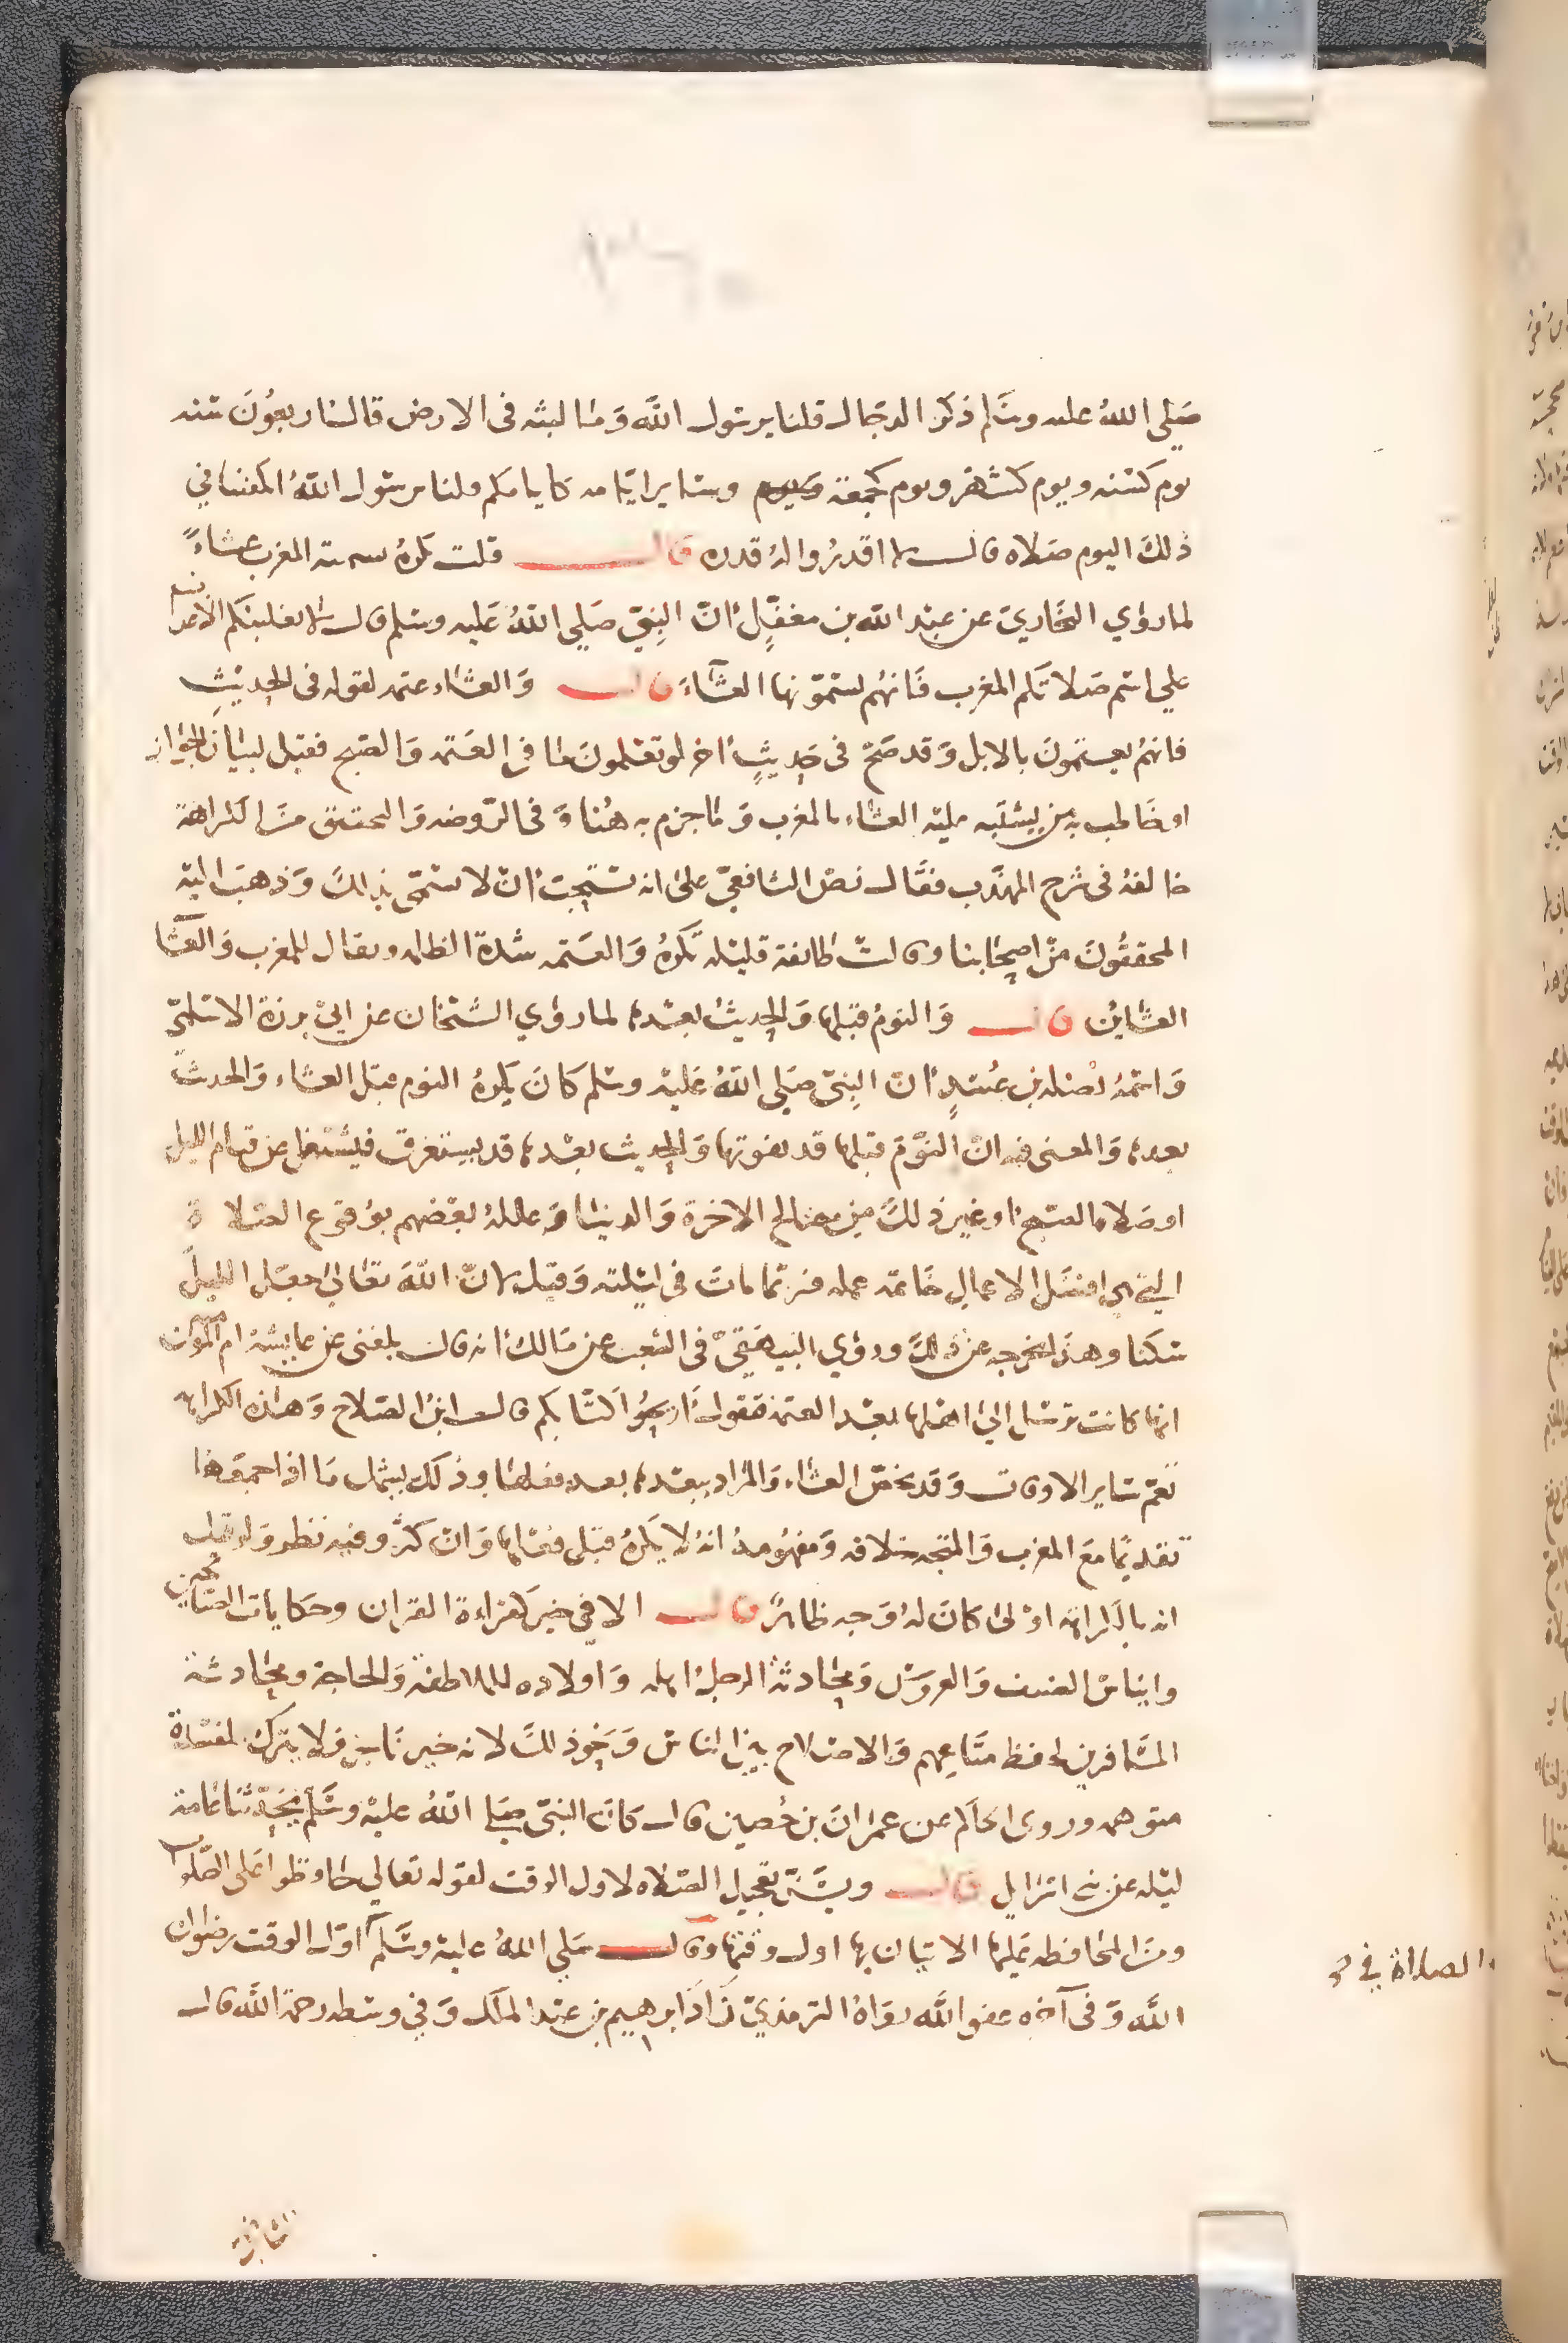 صَلي اللهُ عليه وسَلم ذكر الدجال قلنا يرسول الله وَما لبثه فى الارض قال اربعوُنَ سنه
يوم كسنه ويوم كشهر ويوم كجمعة وساير ايامه كايامكم قلنا يرسول اللهُ اتكفينا في
ذلكَ اليوم صَلاه قال لا اقدرُوا لهُ قدره قال قلت يكرهُ سمية المغرب عشاءً
لما روي البخاري عن عبْد الله بن مغفلٍ انّ النِبيّ صَلي اللهُ عَليه وسلم قال لا يغلبنكم الاعراب
علي اسم صَلاتكم المغرب فَانهُم يسمّونها العشَاءَ قال وَالعشاء عتمه لقوله فى الحديثِ
فانهمُ يعتمونَ بالابل وَقد صَحّ فى حَديثٍ اخر لو تعْلمونَ ما في العَتمه وَالصبح فقيل لبيَان الجوَاز
او خَاطب به من يشتَبه عليْه العشاء بالمغرب وَمَا جزم به هُنا وَفى الرّوضه وَالتحقيق منَ الكراهة
خالفهُ فى شرح المهذب فقَال نصّ الشافعيّ على انه يستحِبّ انْ لا تسمّى بذلكَ وَذهبَ اليْه
المحققُونَ منْ اصحَابنا وقالتْ طائفة قليْله تكرهُ وَالعتمه شدة الظلمه ويقال للمغرب وَالعشَا
العشائين قال وَالنومُ قبْلها وَالحديثُ بعْدها لما روَي الشيْخان عن ابيْ برزة الاسْلميّ
وَاسْمهُ نضله بن عُبيْدٍ انّ النِبيّ صَلي اللهُ عَليْه وسْلم كانَ يكرهُ النوم قبْل العشاء وَالحديثَ
بعدها وَالمعنى فيه انّ النَّوْمَ قبْلها قد يفوتها وَالحديث بعْدها قد يستغرق فيشتغل عن قيام الليل
او صَلاة الصّبح او غير ذلكَ من مصَالح الاخرة وَالدنيَا وَعللهُ بعْضهم بوُقوع الصّلاة
التي هي افضَل الاعمالِ خاتمة عمله فربّما ماتَ فى ليْلته وَقيل لانّ اللهَ تعَالى جعَل الليلَ
سكنا وهذَا يخرجه عن ذلكَ وروَي البيهَقيّ فى الشعب عن مَالك انه قال بلغنى عن عايشهُ ام المؤمنين
انها كانت ترسْل الى اهْلها بعْد العتمة فتقول اَريحُوا كتابكم قال ابنُ الصّلاح وَهذه الكراهة
تعمّ سَاير الاوقات وَقد يخصّ العشاء وَالمرَاد ببعْدها بعد فعلها وذلك يشمل مَا اذا جمعَها
تقديمًا معَ المغرب وَالمتجه خلافه وَمفهُومهُ انهُ لا يكرهُ قبْل فعْلها وَانْ كثر وفيه نظر وَلو قيل
انه بالكراهة اوْلى كانَ لهُ وَجه ظاهرٌ قال الا في خير كقراءة القران وحكايات الصَّالحين
وايناس الضيف وَالعروسْ وَمحَادثة الرجل اهله وَاولاده للملاطفة وَالحاجة ومحَادثة
المسَافرين لحفظ متَاعِهم وَالاصلاح بيْن الناس وَنحوِ ذلكَ لانه خير نَاجز فلا يترك لمفسْدة
متوهمه وروى الحاكم عن عمرَانَ بن حُصين قال كانَ النبّى صَلي اللهُ عليْه وسَلم يحَدّثنا عَامة
ليْله عن بني اسرَايل قال ويسَنّ تعجيل الصّلاه لاول الوقت لقوله تعالي حَافظوا عَلى الصّلوات
ومنَ المحَافظه عليْها الاتيان بها اول وقتهَا وقال صَلي اللهُ عليهْ وسَّلم اوّل الوقت رضوَان
الله وَفى آخره عفو الله روَاهُ الترمذيّ زَادَ ابرهيم بن عبْد الملك وَفي وسَطه رحمة الله قال
الصلاة في
الشافعى